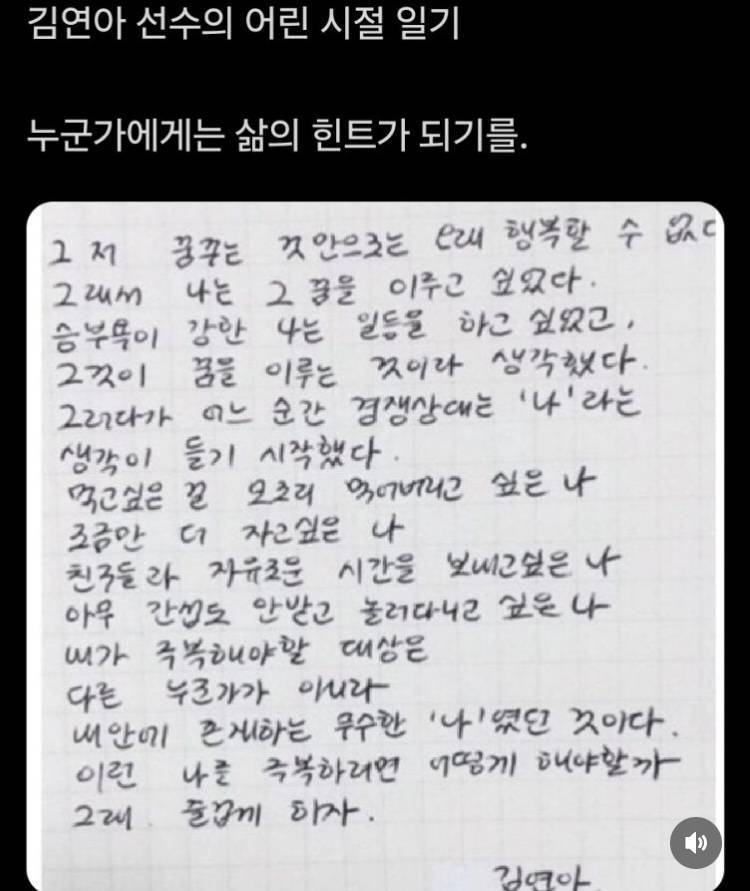 김연아 선수의 어린 시절 일기
누군가에게는 삶의 힌트가 되기를.
그저 꿈꾸는 것 만으로는 오래 행복할 수 없다
그래서 나는 그 꿈을 이루고 싶었다.
승부욕이 강한 나는 일등을 하고 싶었고,
그것이 꿈을 이루는 것이라 생각했다.
그러다가 어느 순간 경쟁상대는 '나'라는
생각이 들기 시작했다.
먹고싶은 걸 모조리 먹어버리고 싶은 나
조금만 더 자고싶은 나
친구들과 자유로운 시간을 보내고싶은 나
아무 간섭도 안받고 놀러다니고 싶은 나
내가 극복해야할 대상은
다른 누군가가 아니라
내안에 존재하는 무수한 '나'였던 것이다.
이런 나를 극복하려면 어떻게 해야할까
그래. 즐겁게 하자.
김연아